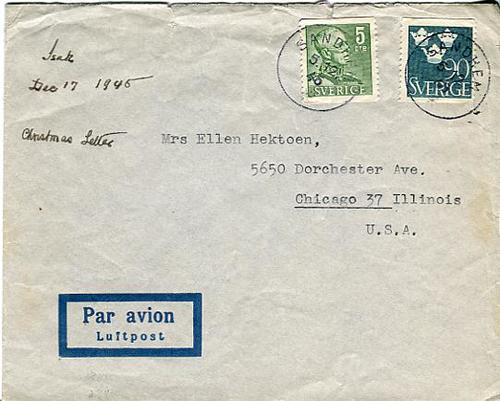 Isak
Dec 17 1945
Christmas Letter
5
ÖRE
SVERIGE
90
SVERIGE
SANDHEM
Mrs Ellen Hektoen,
5650 Dorchester Ave.
Chicago 37 Illinois
U.S.A.
Par avion
Luftpost